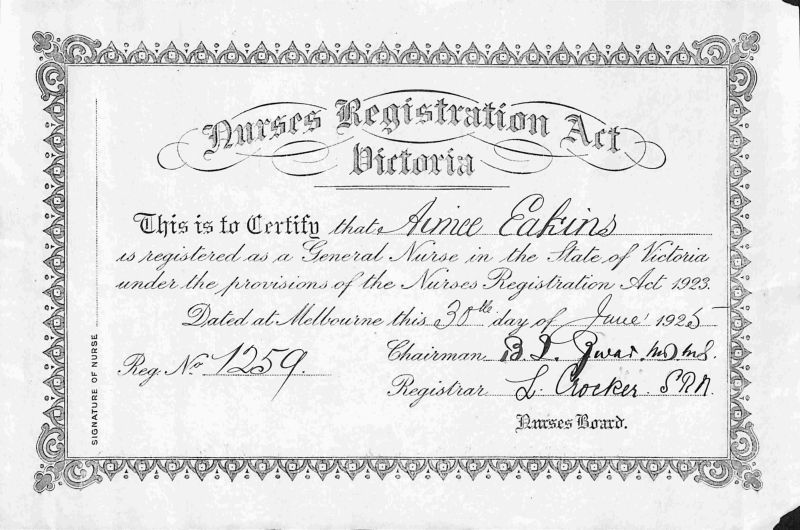 Nurses Registration Act
Victoria
This is to Certify that Aimee Eakins
is registered as a General Nurse in the State of Victoria
under the provisions of the Nurses Registration Act 1923.
Dated at Melbourne this 30th day of June 1925
Reg. No 1259.
Chairman B. T. Zwar. M.D. M.S.
Registrar L. Crocker. S.R.N.
Nurses Board.
SIGNATURE OF NURSE